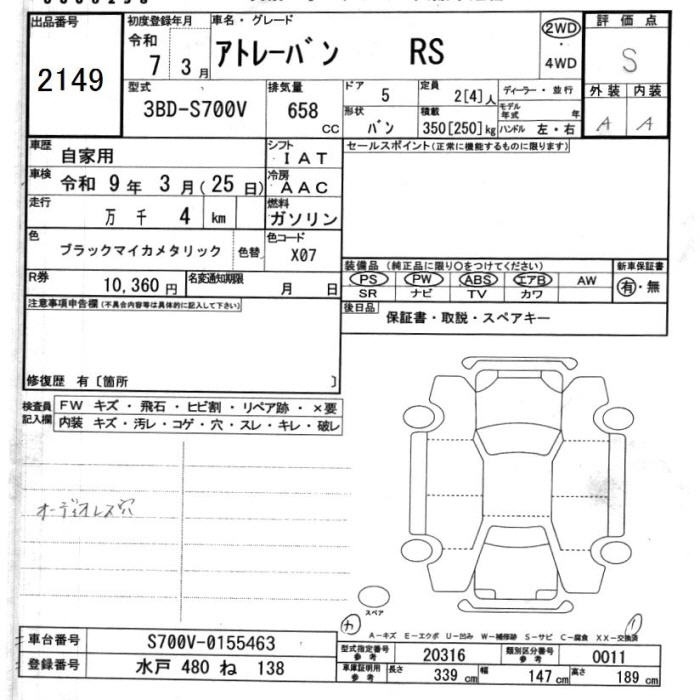 出品番号 初度登録年月 車名・グレード 2WD 評価点
2149 令和 7 3月 アトレーバン RS ・ 4WD S
型式 排気量 ドア 5 定員 2[4]人 ディーラー・並行 外装 内装
3BD-S700V 658 cc 形状 バン 積載 350[250]kg モデル年式 年 ハンドル 左・右 A A
車歴 自家用 シフト IAT セールスポイント(正常に機能するものに限ります)
車検 令和 9年 3月(25日) 冷房 AAC
走行 万 千 4 km 燃料 ガソリン
色 ブラックマイカメタリック 色替 色コード X07
装備品 (純正品に限り○をつけてください) 新車保証書
R券 10,360円 名変通知期限 月 日 PS PW ABS エアB AW 有・無
SR ナビ TV カワ
注意事項申告欄(不具合内容等は具体的に記入して下さい) 後日品 保証書・取説・スペアキー
修復歴 有〔箇所 〕
検査員記入欄 FW キズ・飛石・ヒビ割・リペア跡・×要
内装 キズ・汚レ・コゲ・穴・スレ・キレ・破レ
オーディオレス穴
スペア
カ イ
A-キズ E-エクボ U-凹み W-補修跡 S-サビ C-腐食 XX-交換済
車台番号 S700V-0155463 型式指定番号 参考 20316 類別区分番号 参考 0011
登録番号 水戸 480 ね 138 車庫証明用 参考 長さ 339 cm 幅 147 cm 高さ 189 cm